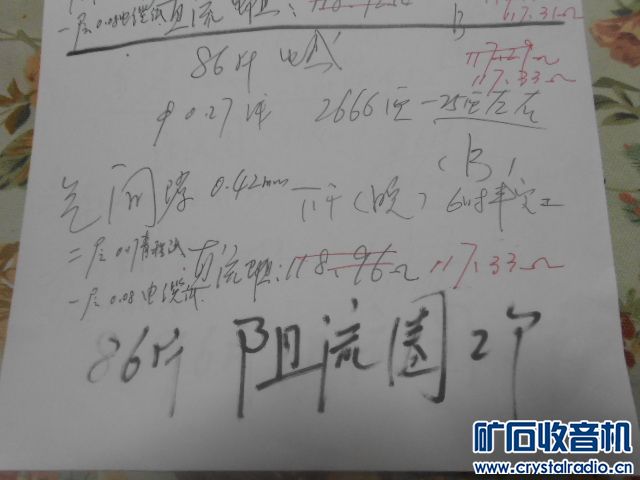 一层0.08电缆纸直流电阻:
B 117.31Ω
86片电感
117.33Ω
φ0.27线 2666匝-25匝左右
(B)
气间隙0.42mm 下午(晚)6时半完工
二层0.17青稞纸
直流电阻:118.96Ω 117.33Ω
一层0.08电缆纸
86片 阻流圈2个
矿石收音机
www.crystalradio.cn